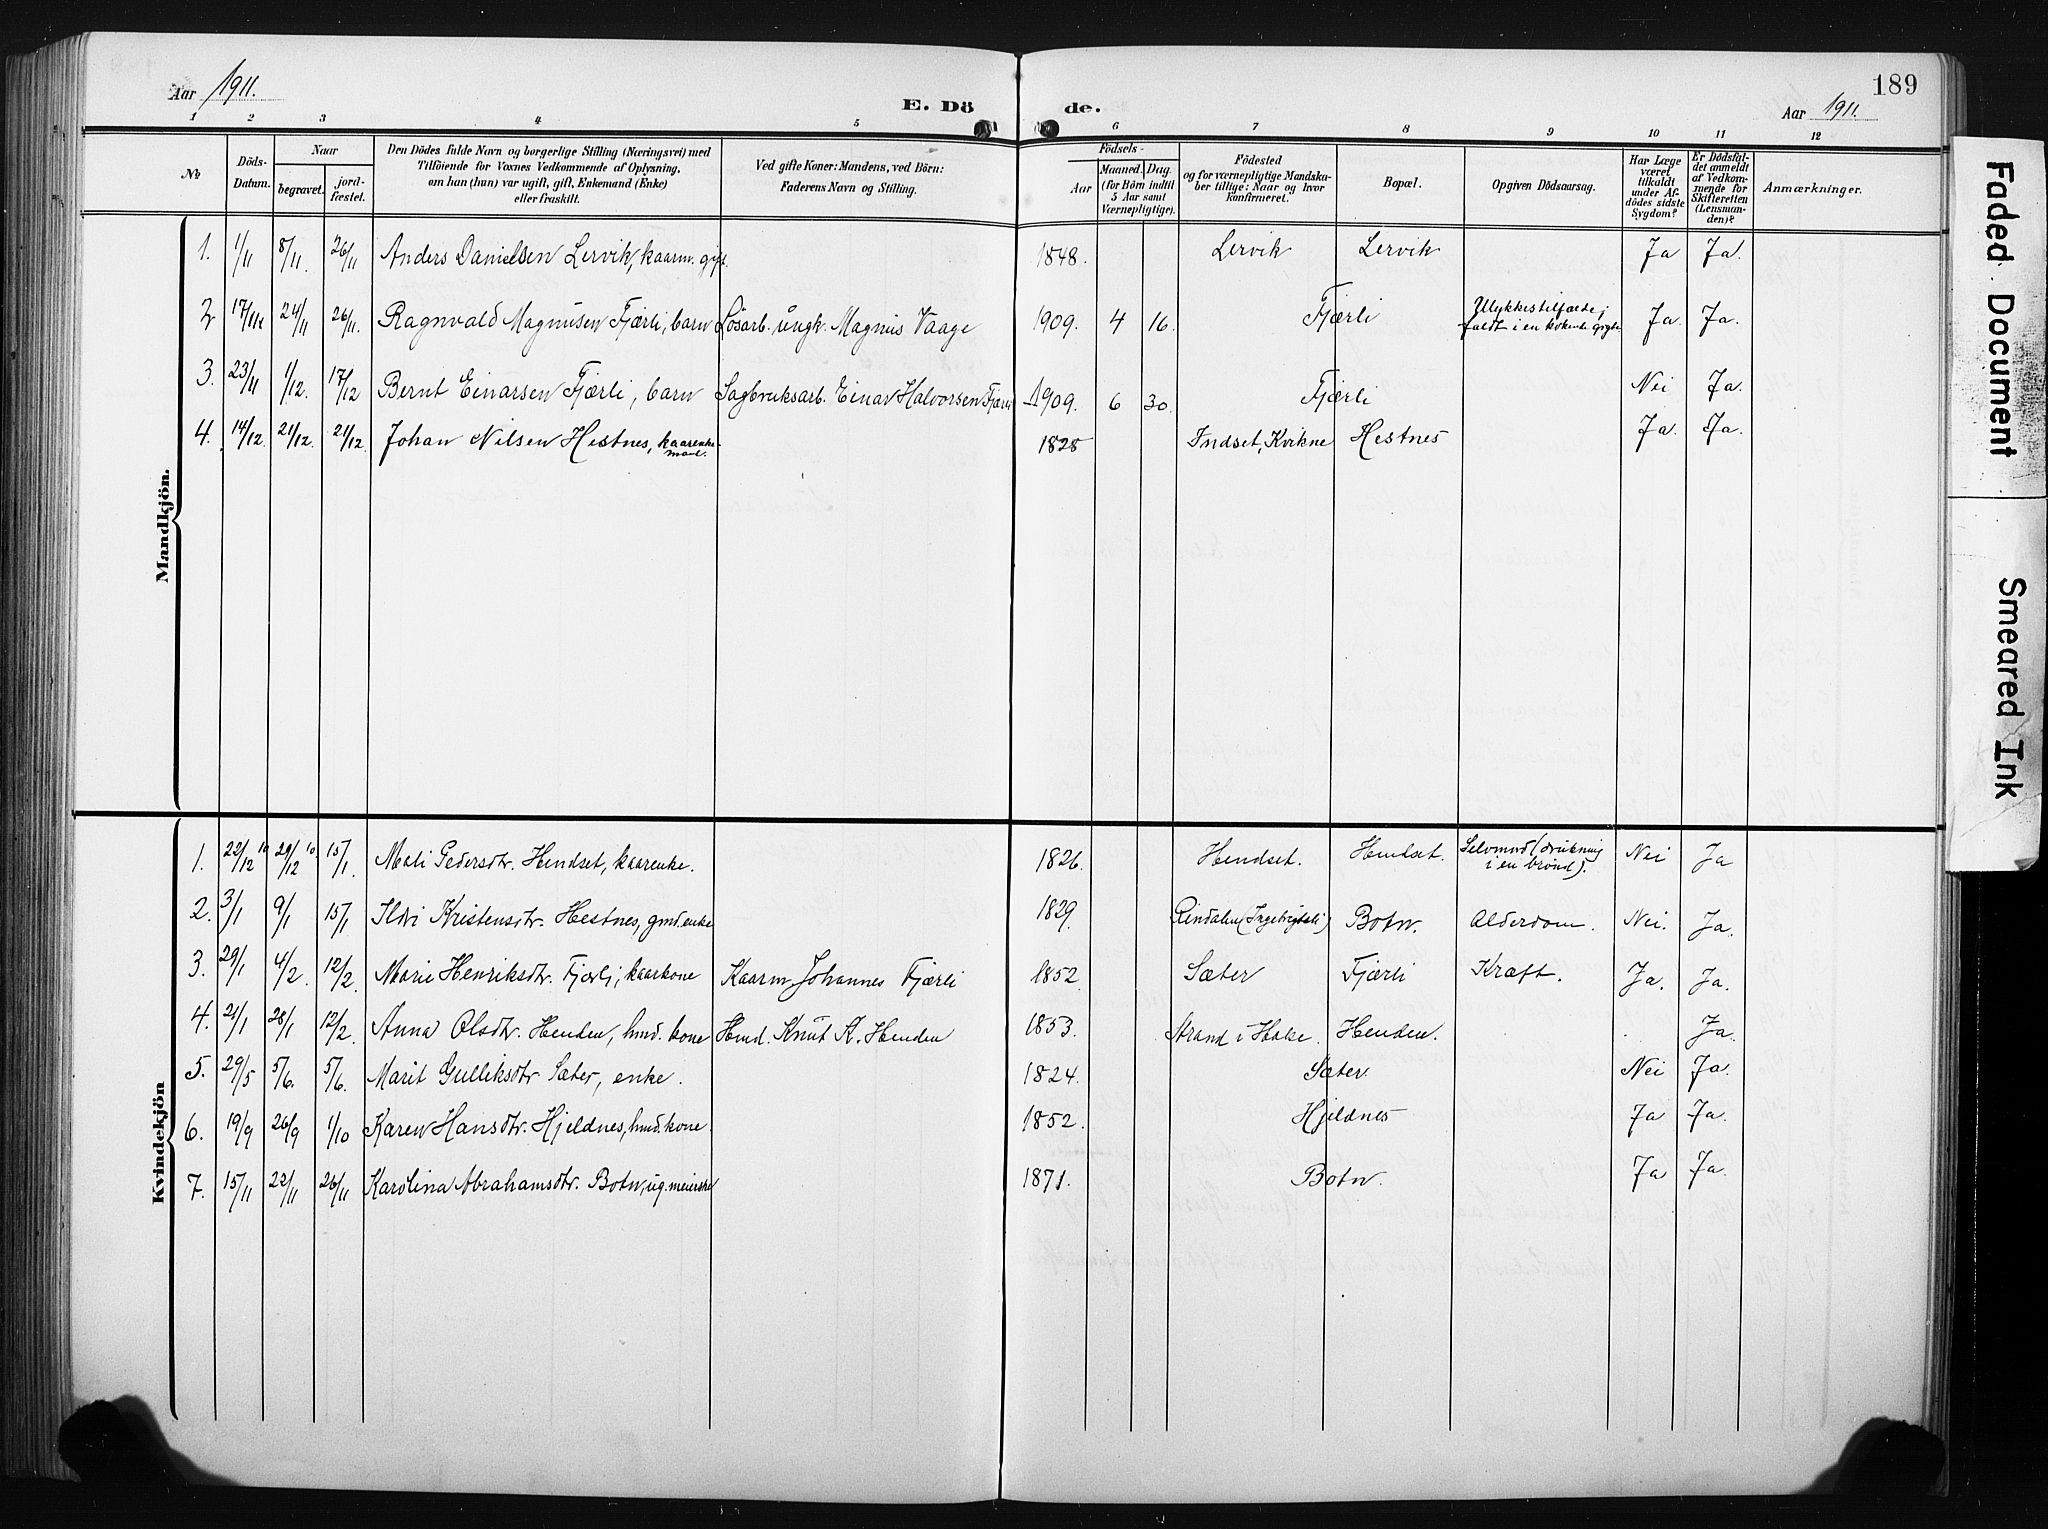 Aar 1911.
E. Dö de.
189
Aar 1911.
1 2 3 4 5 6 7 8 9 10 11 12
№
Döds-Datum.
Naar
begravet.
jord-fæstet.
Den Dödes fulde Navn og borgerlige Stilling (Næringsvei) med
Tilföiende for Voxnes Vedkommende af Oplysning,
om han (hun) var ugift, gift, Enkemand (Enke)
eller fraskilt.
Ved gifte Koner: Mandens, ved Börn:
Faderens Navn og Stilling.
Födsels-
Aar
Maaned. Dag.
(for Börn indtil
5 Aar samt
Værnepligtige).
Födested
og for værnepligtige Mandska-
ber tillige: Naar og hvor
konfirmeret.
Bopæl.
Opgiven Dödsaarsag.
Har Læge
været
tilkaldt
under Af-
dödes sidste
Sygdom?
Er Dödsfal-
det anmeldt
af Vedkom-
mende for
Skifteretten
(Lensman-
den)?
Anmærkninger.
Mandkjön.
1. 1/11 8/11. 26/11 Anders Danielsen Lervik, kaarm. gift. 1848. Lervik Lervik Ja Ja.
2 17/11 24/11 26/11. Ragnvald Magnusen Fjærli, barn Lösarb. ungk. Magnus Vaage 1909. 4 16. Fjærli Ulykkestilfælde; faldt i en kokende gryte Ja. Ja.
3. 23/11 1/12. 17/12 Bernt Einarsen Fjærli, barn Sagbruksarb. Einar Halvorsen Fjærli 1909. 6 30. Fjærli Nei Ja.
4. 14/12. 21/12. 21/12. Johan Nilsen Hestnes, kaarenke-mand. 1828 Indset, Kvikne Hestnes Ja. Ja.
Kvindekjön
1. 22/12 10 29/12 10. 15/1. Mali Pedersdtr. Hendset, kaarenke. 1826. Hendset. Hendset. Selvmord (drukning i en brönd). Nei Ja
2. 3/1 9/1 15/1 Ildri Kristensdtr. Hestnes, gmd.enke 1829. Rindalen (Ingebrigtsli) Botn. Alderdom. Nei. Ja.
3. 29/1 4/2. 12/2. Marie Henriksdtr. Fjærli, kaarkone Kaarm. Johannes Fjærli 1852. Sæter Fjærli Kræft. Ja. Ja.
4. 21/1 28/1 12/2. Anna Olsdtr. Henden, hmd. kone Hmd. Knut A. Henden 1853. Strand i Halse. Henden. Ja.
5. 29/5 5/6. 5/6. Marit Gulliksdtr Sæter, enke. 1824. Sæter. Nei Ja.
6. 19/9 26/9 1/10 Karen Hansdtr. Hjeldnes, hmd. kone. 1852. Hjeldnes Ja Ja.
7. 15/11 22/11 26/11 Karolina Abrahamsdtr. Botn, ug. meierske 1871. Botn. Ja Ja.
Faded Document
Smeared Ink